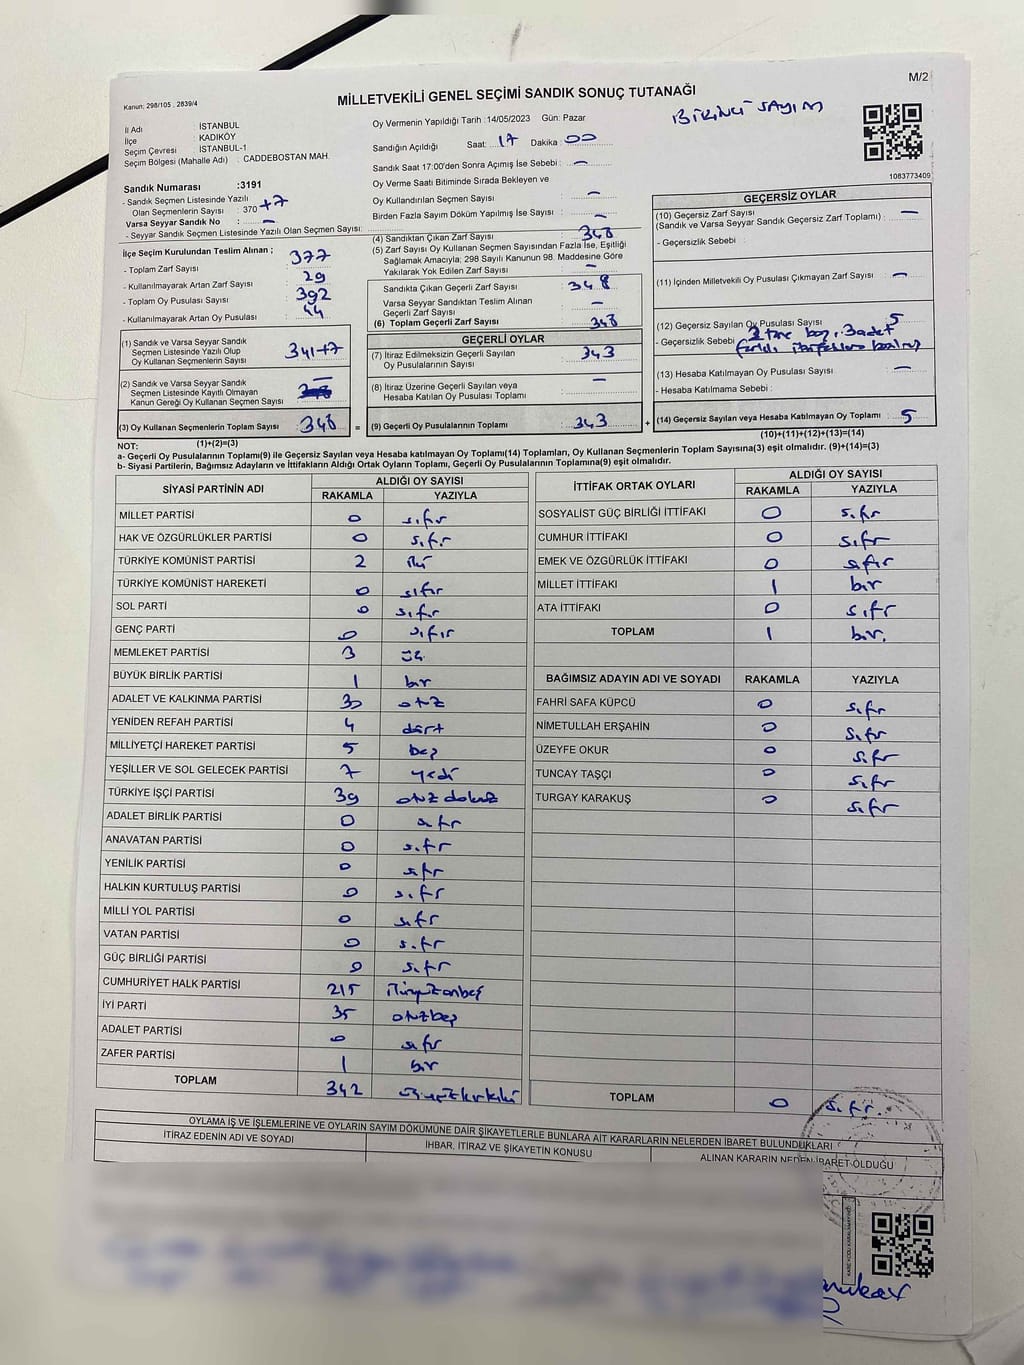 M/2
Kanun: 298/105 , 2839/4
MİLLETVEKİLİ GENEL SEÇİMİ SANDIK SONUÇ TUTANAĞI
BİRİNCİ SAYIM
İl Adı : İSTANBUL
İlçe : KADIKÖY
Seçim Çevresi : İSTANBUL-1
Seçim Bölgesi (Mahalle Adı) : CADDEBOSTAN MAH.
Sandık Numarası :3191
- Sandık Seçmen Listesinde Yazılı
Olan Seçmenlerin Sayısı : 370 +7
Varsa Seyyar Sandık No : –
- Seyyar Sandık Seçmen Listesinde Yazılı Olan Seçmen Sayısı:
Oy Vermenin Yapıldığı Tarih :14/05/2023 Gün: Pazar
Sandığın Açıldığı Saat: 17 Dakika : 00
Sandık Saat 17:00'den Sonra Açılmış İse Sebebi : –
Oy Verme Saati Bitiminde Sırada Bekleyen ve
Oy Kullandırılan Seçmen Sayısı : –
Birden Fazla Sayım Döküm Yapılmış İse Sayısı : –
1083773409
İlçe Seçim Kurulundan Teslim Alınan ;
- Toplam Zarf Sayısı 377
- Kullanılmayarak Artan Zarf Sayısı 29
- Toplam Oy Pusulası Sayısı 392
- Kullanılmayarak Artan Oy Pusulası 44
(1) Sandık ve Varsa Seyyar Sandık
Seçmen Listesinde Yazılı Olup
Oy Kullanan Seçmenlerin Sayısı 341+7
(2) Sandık ve Varsa Seyyar Sandık
Seçmen Listesinde Kayıtlı Olmayan
Kanun Gereği Oy Kullanan Seçmen Sayısı –
(3) Oy Kullanan Seçmenlerin Toplam Sayısı : 348 =
(4) Sandıktan Çıkan Zarf Sayısı : 348
(5) Zarf Sayısı Oy Kullanan Seçmen Sayısından Fazla İse, Eşitliği
Sağlamak Amacıyla; 298 Sayılı Kanunun 98. Maddesine Göre
Yakılarak Yok Edilen Zarf Sayısı : –
Sandıkta Çıkan Geçerli Zarf Sayısı : 348
Varsa Seyyar Sandıktan Teslim Alınan
Geçerli Zarf Sayısı : –
(6) Toplam Geçerli Zarf Sayısı 348
GEÇERLİ OYLAR
(7) İtiraz Edilmeksizin Geçerli Sayılan
Oy Pusulalarının Sayısı : 343
(8) İtiraz Üzerine Geçerli Sayılan veya
Hesaba Katılan Oy Pusulası Toplamı : –
(9) Geçerli Oy Pusulalarının Toplamı : 343 +
GEÇERSİZ OYLAR
(10) Geçersiz Zarf Sayısı
(Sandık ve Varsa Seyyar Sandık Geçersiz Zarf Toplamı) : –
- Geçersizlik Sebebi :
(11) İçinden Milletvekili Oy Pusulası Çıkmayan Zarf Sayısı : –
(12) Geçersiz Sayılan Oy Pusulası Sayısı : 5
- Geçersizlik Sebebi 2 tane boş, 3 adet
farklı ittifaklara basılmış
(13) Hesaba Katılmayan Oy Pusulası Sayısı : –
- Hesaba Katılmama Sebebi :
(14) Geçersiz Sayılan veya Hesaba Katılmayan Oy Toplamı : 5
(1)+(2)=(3)
(10)+(11)+(12)+(13)=(14)
NOT:
a- Geçerli Oy Pusulasının Toplamı(9) ile Geçersiz Sayılan veya Hesaba katılmayan Oy Toplamı(14) Toplamları, Oy Kullanan Seçmenlerin Toplam Sayısına(3) eşit olmalıdır. (9)+(14)=(3)
b- Siyasi Partilerin, Bağımsız Adayların ve İttifakların Aldığı Ortak Oyların Toplamı, Geçerli Oy Pusulalarının Toplamına(9) eşit olmalıdır.
SİYASİ PARTİNİN ADI ALDIĞI OY SAYISI
RAKAMLA YAZIYLA
MİLLET PARTİSİ 0 sıfır
HAK VE ÖZGÜRLÜKLER PARTİSİ 0 sıfır
TÜRKİYE KOMÜNİST PARTİSİ 2 iki
TÜRKİYE KOMÜNİST HAREKETİ 0 sıfır
SOL PARTİ 0 sıfır
GENÇ PARTİ 0 sıfır
MEMLEKET PARTİSİ 3 üç
BÜYÜK BİRLİK PARTİSİ 1 bir
ADALET VE KALKINMA PARTİSİ 30 otuz
YENİDEN REFAH PARTİSİ 4 dört
MİLLİYETÇİ HAREKET PARTİSİ 5 beş
YEŞİLLER VE SOL GELECEK PARTİSİ 7 yedi
TÜRKİYE İŞÇİ PARTİSİ 39 otuz dokuz
ADALET BİRLİK PARTİSİ 0 sıfır
ANAVATAN PARTİSİ 0 sıfır
YENİLİK PARTİSİ 0 sıfır
HALKIN KURTULUŞ PARTİSİ 0 sıfır
MİLLİ YOL PARTİSİ 0 sıfır
VATAN PARTİSİ 0 sıfır
GÜÇ BİRLİĞİ PARTİSİ 0 sıfır
CUMHURİYET HALK PARTİSİ 215 ikiyüzonbeş
İYİ PARTİ 35 otuzbeş
ADALET PARTİSİ 0 sıfır
ZAFER PARTİSİ 1 bir
TOPLAM 342 üçyüzkırkiki
İTTİFAK ORTAK OYLARI ALDIĞI OY SAYISI
RAKAMLA YAZIYLA
SOSYALİST GÜÇ BİRLİĞİ İTTİFAKI 0 sıfır
CUMHUR İTTİFAKI 0 sıfır
EMEK VE ÖZGÜRLÜK İTTİFAKI 0 sıfır
MİLLET İTTİFAKI 1 bir
ATA İTTİFAKI 0 sıfır
TOPLAM 1 bir.
BAĞIMSIZ ADAYIN ADI VE SOYADI RAKAMLA YAZIYLA
FAHRİ SAFA KÜPCÜ 0 sıfır
NİMETULLAH ERŞAHİN 0 sıfır
ÜZEYFE OKUR 0 sıfır
TUNCAY TAŞÇI 0 sıfır
TURGAY KARAKUŞ 0 sıfır
TOPLAM 0 sıfır.
OYLAMA İŞ VE İŞLEMLERİNE VE OYLARIN SAYIM DÖKÜMÜNE DAİR ŞİKAYETLERLE BUNLARA AİT KARARLARIN NELERDEN İBARET BULUNDUKLARI
İTİRAZ EDENİN ADI VE SOYADI İHBAR, İTİRAZ VE ŞİKAYETİN KONUSU ALINAN KARARIN NEDEN İBARET OLDUĞU